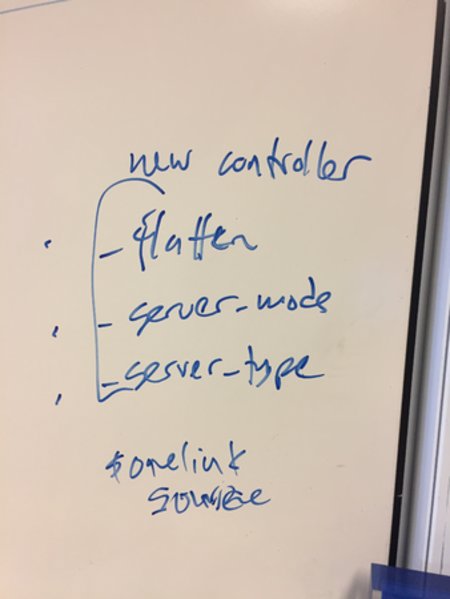 new controller
- flatten
- server-mode
- server-type
$onelink
source